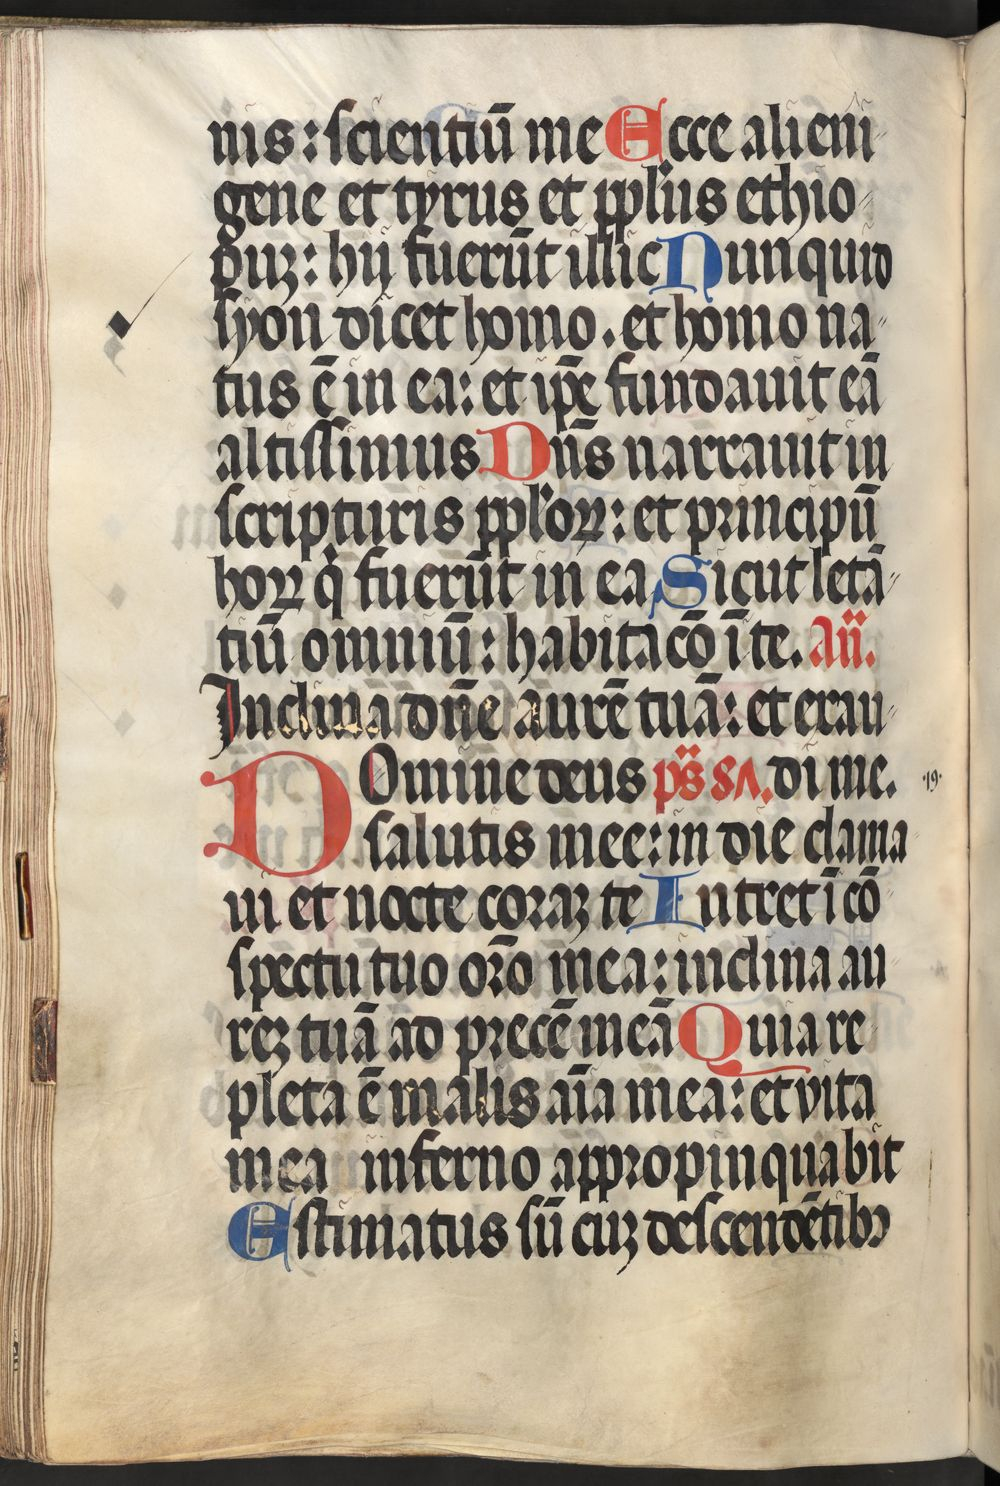 nis: scientiū me Ecce alieni
gene et tyrus et ppl'us ethio
puȝ: hij fuerūt illic Nunquid
syon dicet homo. et homo na
tus ē in ea: et ip̄e fundauit eā
altissimus Dn̄s narrauit in
scripturis ppl'oꝝ: et principū
hoꝝ q̇ fuerūt in ea Sicut letā
tiū omniū: habitacō ī te. An̄.
Inclina dn̄e aurē tuā: et exau
DOmine deus ps̄ SA. di me.
·19·
salutis mee: in die clama
ui et nocte coraȝ te Intret ī cō
spectu tuo orō mea: inclina au
reȝ tuā ad precē meā Quia re
pleta ē malis aīa mea: et vita
mea inferno appropinquabit
Estimatus sū cuȝ descendētibꝰ